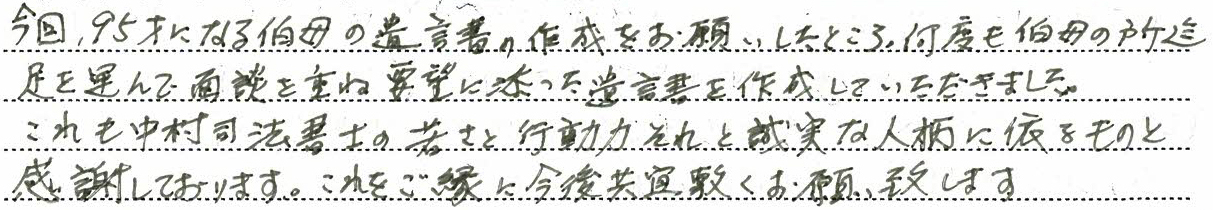 今回、95才になる伯母の遺言書の作成をお願いしたところ、何度も伯母の所迄
足を運んで面談を重ね要望に添った遺言書を作成していただきました。
これも中村司法書士の若さと行動力それと誠実な人柄に依るものと
感謝しております。これをご縁に今後共宜敷くお願い致します